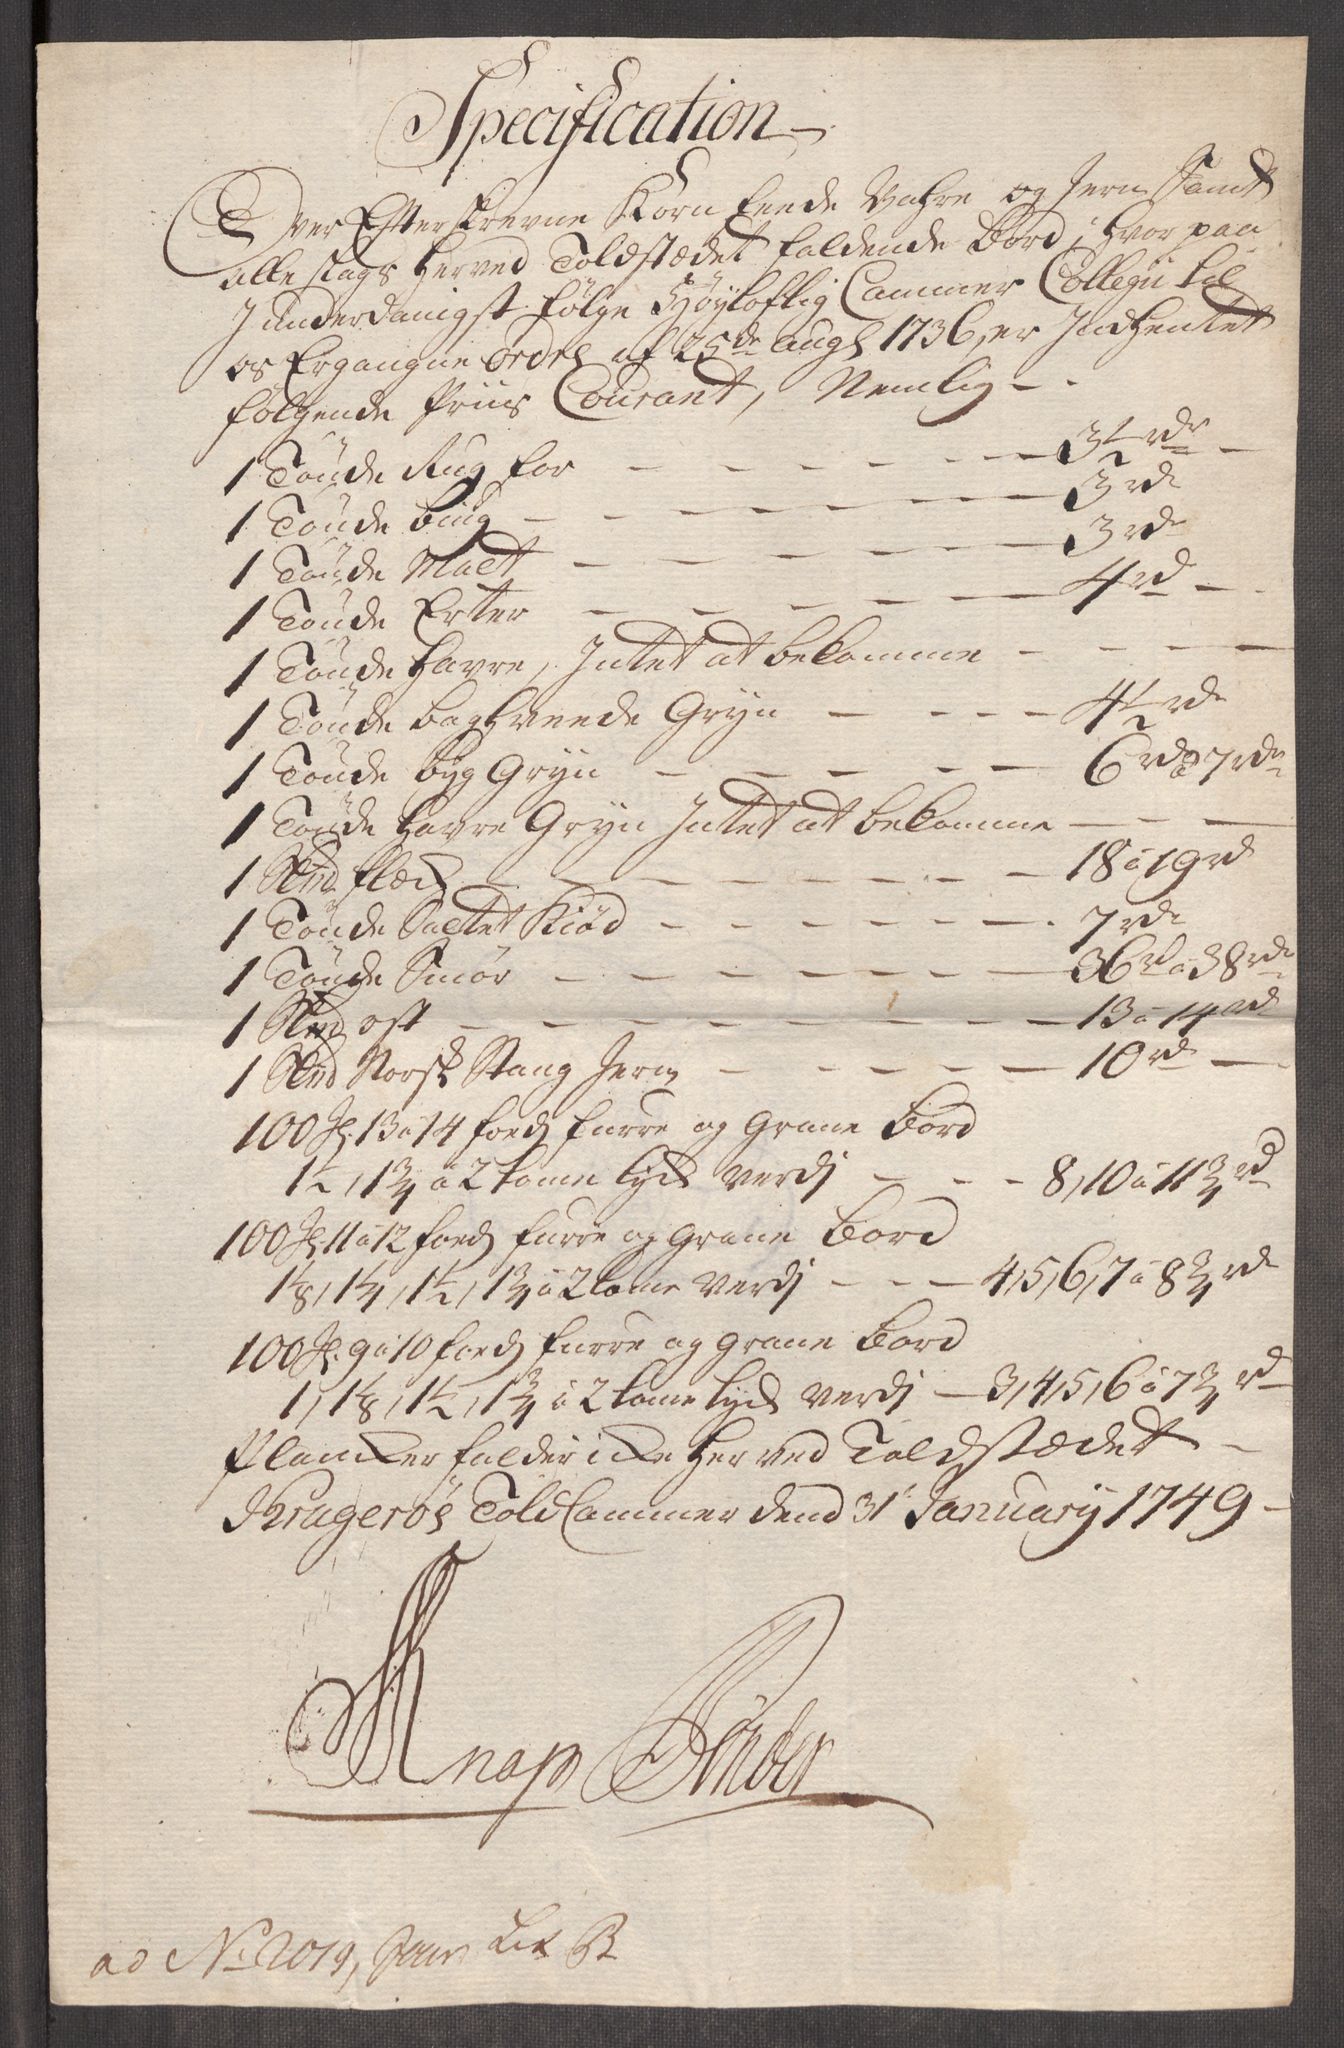 Specification
Over Efterskrevne Korn feede Vahre og Jern Samt
alle slags herved Toldstædet faldende Bord, hvor paa
I underdanigst følge Høyloflig Cammer Collegii til
os Ergangne ordre af 25de aug 1736, er Indhentet
følgende Priis Courant, Nemlig
1 Tönde Rug for 3½ rdr
1 Tönde biug 3 rdr
1 Tönde Malt 3 rdr
1 Tönde Erter 4 rd
1 Tönde Havre, Intet at bekomme
1 Tönde boghveede Gryn 4½ rdr
1 Tönde byg Gryn 6 rd a 7 rdr
1 Tönde Havre Gryn Intet at bekomme
1 Sk℔d flæsk 18 a 19 rd
1 Tönde Saltet Kiød 7 rdr
1 Tönde Smør 36 rd a 38 rdr
1 Sk℔d ost 13 a 14 rd
1 Sk℔d Norsk Stang Jern 10 rdr
100 St. 13 a 14 foeds furre og Grane Bord
1½, 1¾ a 2 tome tyk verdi 8, 10 a 11¾ rd
100 St. 11 a 12 foeds furre og Grane Bord
1⅛, 1¼, 1½, 1¾ a 2 tome verdi 4, 5, 6, 7 a 8¾ rdr
100 St. 9 a 10 foeds furre og Grane Bord
1, 1⅛, 1½, 1¾ a 2 tome tyk verdi 3, 4, 5, 6 a 7¾ rd
Plancker falder icke her ved Toldstædet
Kragerøe Told Cammer dend 31 January 1749
Knap
ad No 2019, Lit B